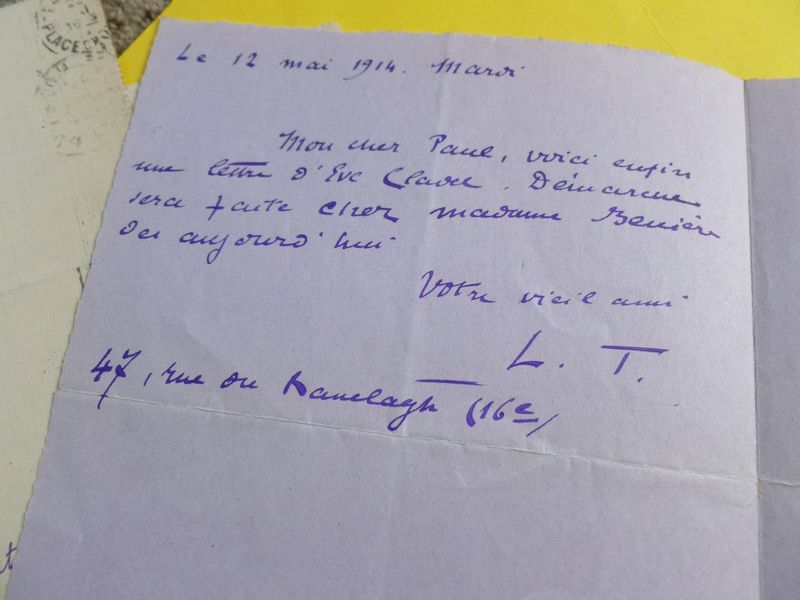 PLACE
Le 12 mai 1914. Mardi
Mon cher Paul, voici enfin
une lettre d'Eve Clavel. Démarche
sera faite chez madame Benière
des aujourd'hui
Votre vieil ami
L. T.
47, rue du Ranelagh (16e)